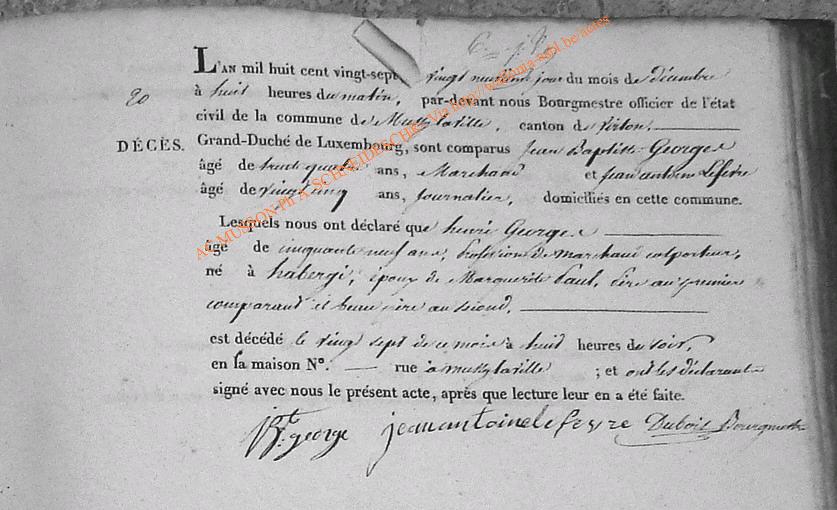 L'AN mil huit cent vingt-sept vingt huitième jour du mois de décembre
20
à huit heures du matin, par-devant nous Bourgmestre officier de l'état
civil de la commune de Mussylaville, canton de Virton,
DÉCÈS.
Grand-Duché de Luxembourg, sont comparus Jean Baptiste George
âgé de trente quatre ans, Marchand et Jean antoine Lefevre
âgé de vingt cinq ans, Journalier, domiciliés en cette commune.
Lesquels nous ont déclaré que henri George
âgé de cinquante neuf ans, Profession de marchand colporteur,
né à habergi, époux de Marguerite Paul, Père au premier
comparant et beau père au second,
est décédé le vingt sept de ce mois à huit heures de soir,
en sa maison N°. — rue à mussylaville ; et ont les déclarants
signé avec nous le présent acte, après que lecture leur en a été faite.
jBt. george jean antoine lefevre Dubois Bourgmestre